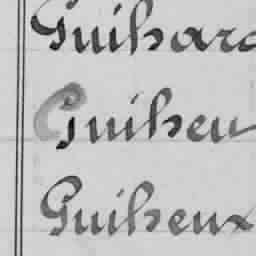 Guihard
Guiheu
Guiheux